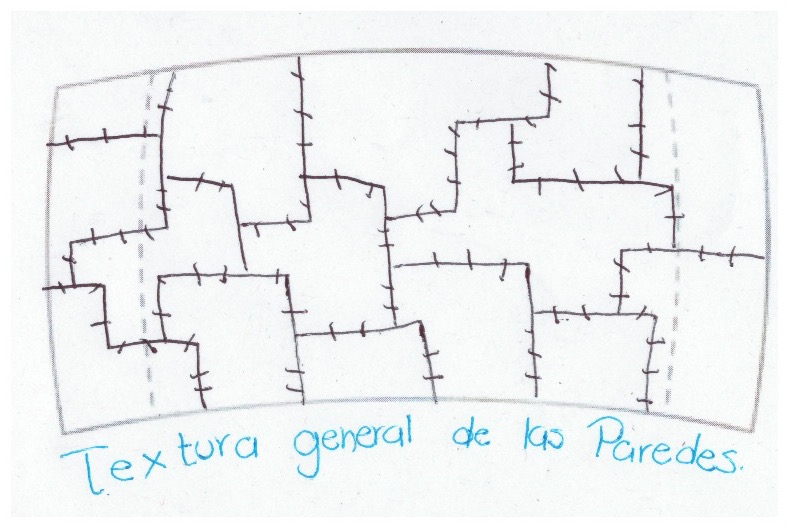 Textura general de las Paredes.